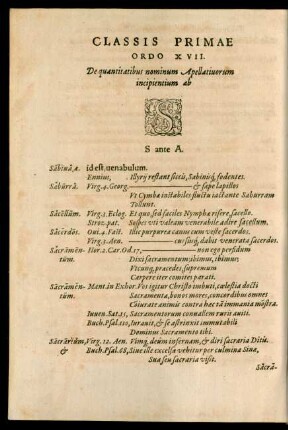 CLASSIS PRIMAE
ORDO XVII.
De quantitatibus nominum Apellativorum
incipientium ab
S
S ante A.
Sabina,æ. id est, uenabulum.
Ennius, Illyrij restant sicis, Sabinisq́; fodentes.
Saburra. Virg. 4. Georg. & sæpe lapillos
Vt Cymbæ instabiles fluctu iactante Saburram
Tollunt.
Sacellum. Virg. 3. Eclog. Et quo sed faciles Nymphæ risere, sacello.
Stroz. pat. adire sacellum.
Sacerdos. Oui. 4. Fast. Ille purpurea canum cum veste sacerdos.
Virg. 3. Aen. venerata sacerdos.
Sacramen- Hor. 2. Car. Od. 17. non ego perfidum
tum. Dixi sacramentum: ibimus, ibimus
Vtcunq; præcedes, supremum
Carpere iter comites parati.
Sacramen- Mant. in Exhor. Christo cælestia docti
tum. Sacramenta, bonos mores, concordibus omnes
contra hæc tam immania
Iuuen. Sat. 15, Sacramentorum
Buch. Psal. 110, Iurauit, & se astrinxit immutabili
Dominus Sacramento tibi.
Sacrarium, Virg. 12. Aen. Vimq; deûm infernam, & diri sacraria Ditis.
& Buch. Psal. 68, Siue ille excelsa vehitur per culmina Sina,
Sina seu sacraria visit.
Sacra-